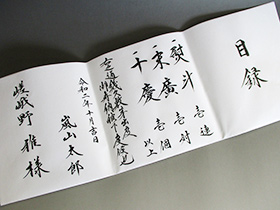 目録
熨斗 壱連
末廣 壱対
千慶 壱個
以上
右之通幾久敷芽出度
令和二年十月吉日
嵐山太郎
嵯峨野雅様